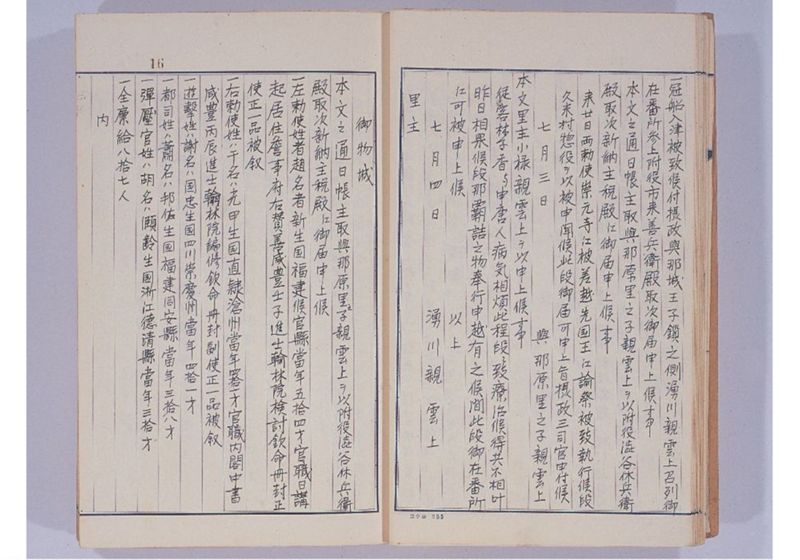 一冠船入津被致候付摂政與那城王子鎖之側湧川親雲上召列御
在番所参上附役市来善兵衛殿取次御届申上候事
本文之通日帳主取與那原里之子親雲上ヲ以附役澁谷休兵衛
殿取次新納主税殿江御届申上候事
来廿日両勅使崇元寺江被差越先国王江諭祭被致執行候段
久米村惣役ヲ以被申聞候此段御届可申上旨摂政三司官申付候
七月三日　與那原里之子親雲上
本文里主小禄親雲上ヲ以申上候事
従客林李香与申唐人病気相煩此程段々致療治候得共不相叶
昨日相果候段那覇詰之物奉行申越有之候間此段御在番所
江可被申上候　以上
七月四日　湧川親雲上
里主
16
御物城
本文之通日帳主取與那原里之子親雲上ヲ以附役澁谷休兵衛
殿取次新納主税殿江御届申上候
一左勅使姓者趙名者新生国福建候官縣當年五拾四才官職日講
起居住詹事府右賛善咸豊壬子進士翰林院検討欽命冊封正
使正一品被叙
一右勅使姓ハ于名ハ光甲生国直隷滄州當年四拾才官職内閣中書
咸豊丙辰進士翰林院編修欽命冊封副使正一品被叙
一遊撃姓ハ謝名ハ国忠生国四川崇慶州當年四拾一才
一都司姓ハ蕭名ハ邦佑生国福建同安縣當年三拾八才
一彈壓官姓ハ胡名ハ頤齢生国浙江徳清縣當年三拾才
一全廩給八拾七人
内